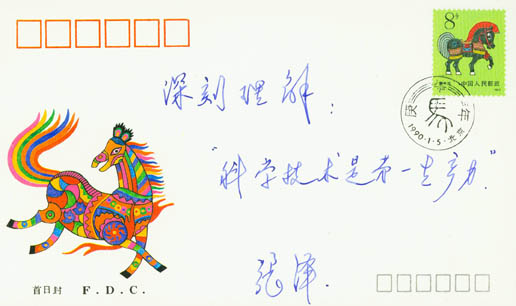 8分
中国人民邮政
庚 年
1990·1·5·北京
深刻理解：
“科学技术是第一生产力”.
張泽.
首日封 F.D.C.